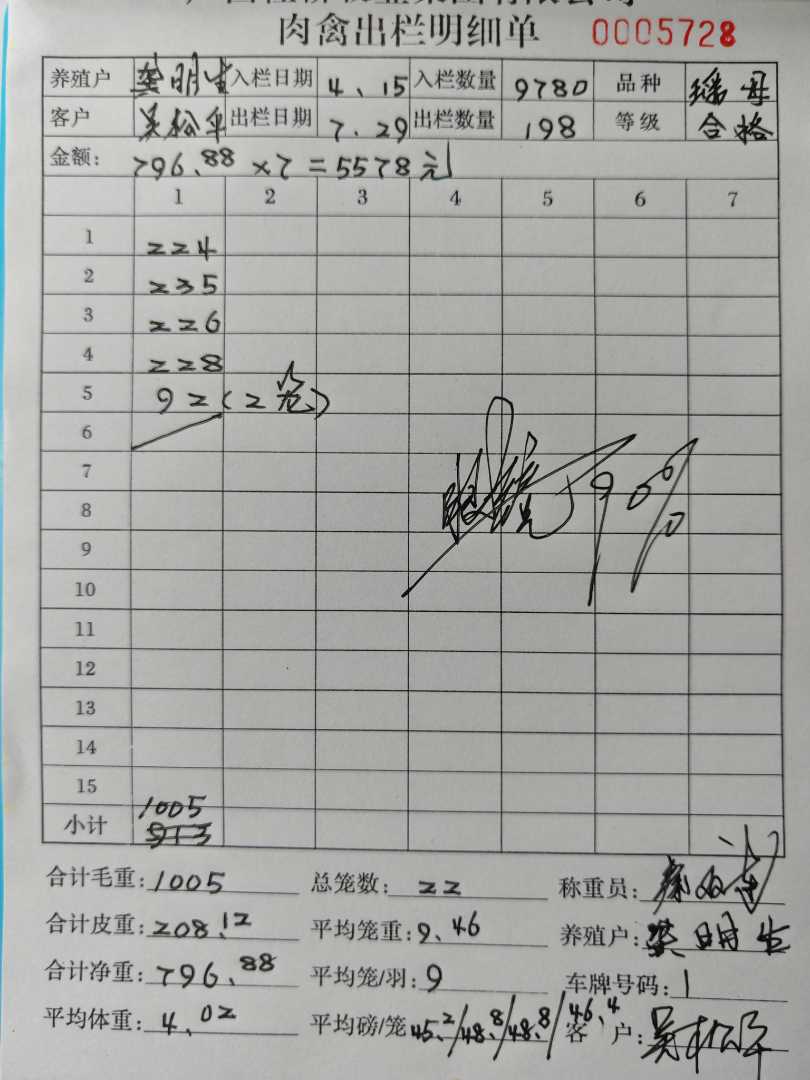 肉禽出栏明细单 0005728
养殖户 龚明生 入栏日期 4.15 入栏数量 9780 品种 瑶母
客户 吴松 出栏日期 7.29 出栏数量 198 等级 合格
金额: 796.88×7=5578元
1 2 3 4 5 6 7
1 224
2 235
3 226
4 228
5 92(2笼)
6
7
8 90%
9
10
11
12
13
14
15
小计 1005
合计毛重: 1005 总笼数: 22 称重员:
合计皮重: 208.12 平均笼重: 9.46 养殖户: 龚明生
合计净重: 796.88 平均笼/羽: 9 车牌号码: 1
平均体重: 4.02 平均磅/笼 45.2/48.8/48.8/46.4 客户: 吴松